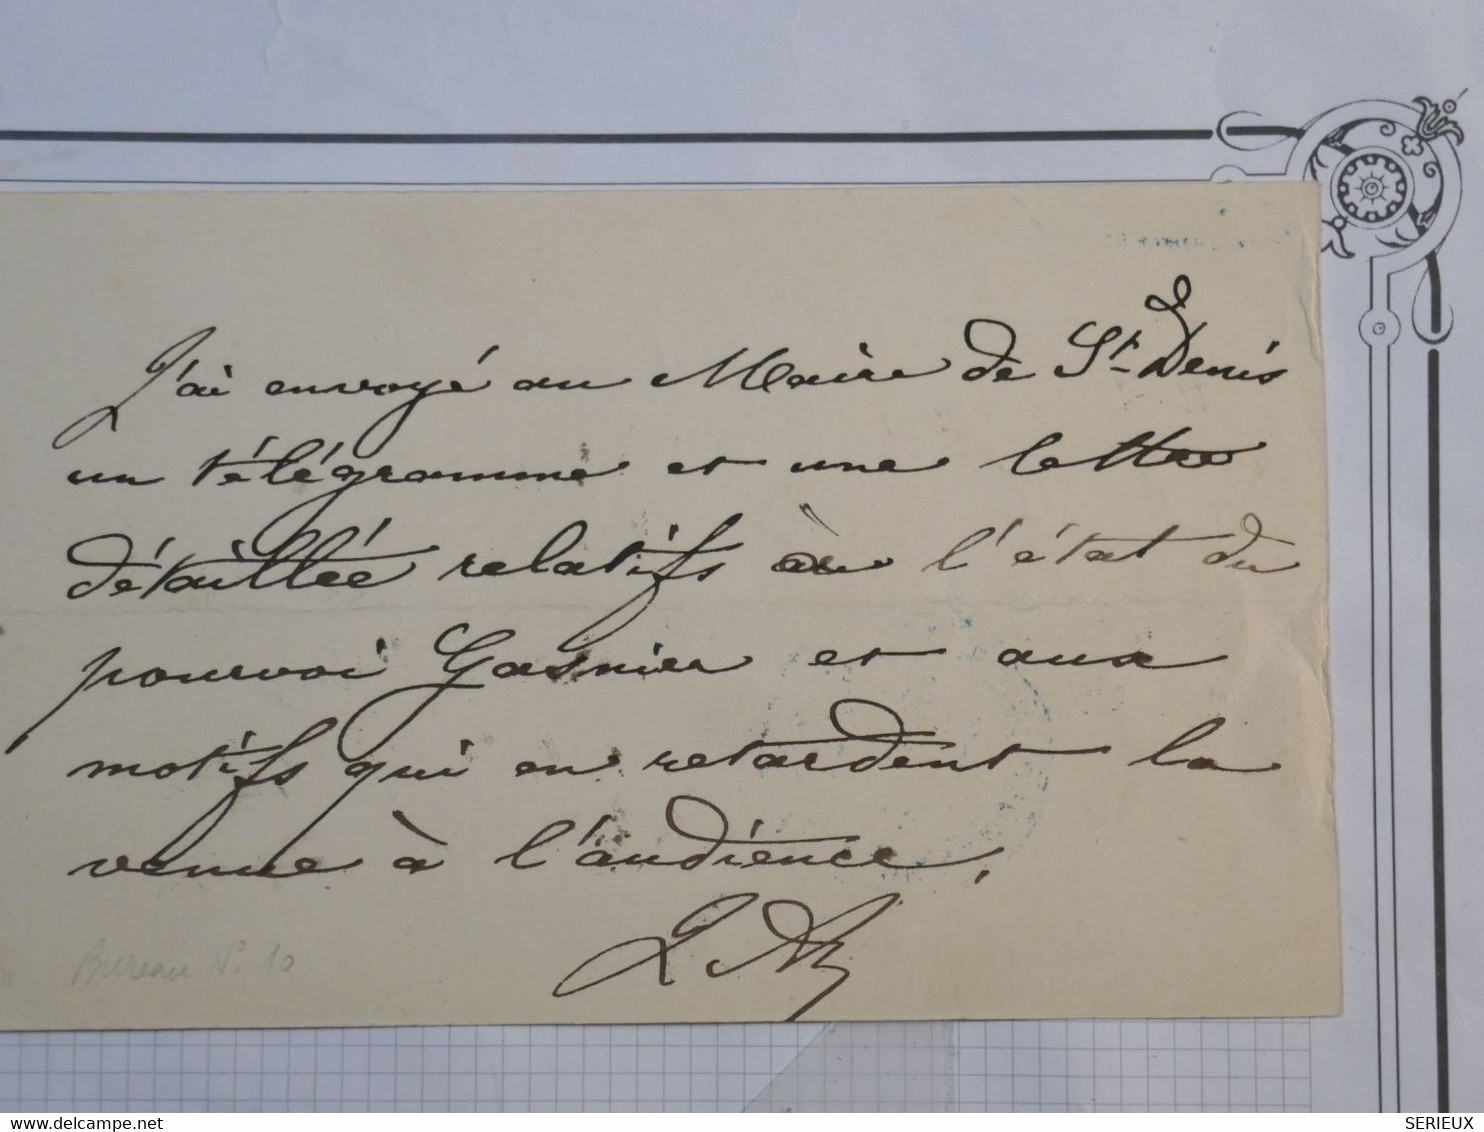 J'ai envoyé au Maire de St Denis
un télégramme et une lettre
détaillée relatifs à l'état du
pourvoi Gasnier et aux
motifs qui en retardent la
venue à l'audience.
Bureau N° 10
delcampe.net
SERIEUX